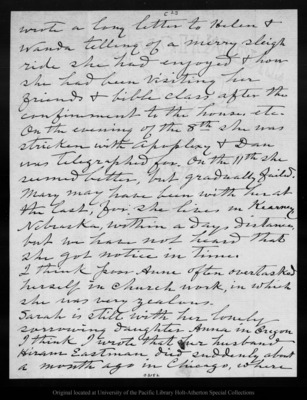 wrote a long letter to Helen &
Wanda telling of a merry sleigh
ride she had enjoyed & how
she had been visiting her
friends & bible class after the
confinement to the house, etc.
On the evening of the 8th she was
stricken with apoplexy & Dan
was telegraphed for. On the 11th she
seemed better, but gradually failed.
Mary may have been with her at
the last, for she lives in Kearney
Nebraska, within a days distance
but we have not heard that
she got notice in time.
I think poor Anne often overtasked
herself in church work, in which
she was very zealous.
Sarah is still with her lonely
sorrowing daughter Anna in Oregon
I think I wrote that her husband
Hiram Eastman, died suddenly about
a month ago in Chicago, where
Original located at University of the Pacific Library Holt-Atherton Special Collections